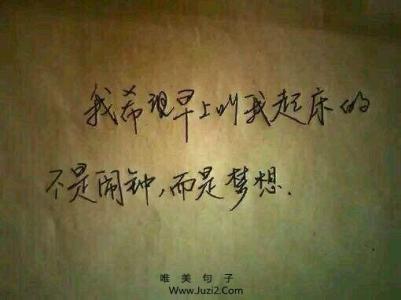 我希望早上叫我起床的
不是闹钟,而是梦想.
唯美句子
Www.Juzi2.Com